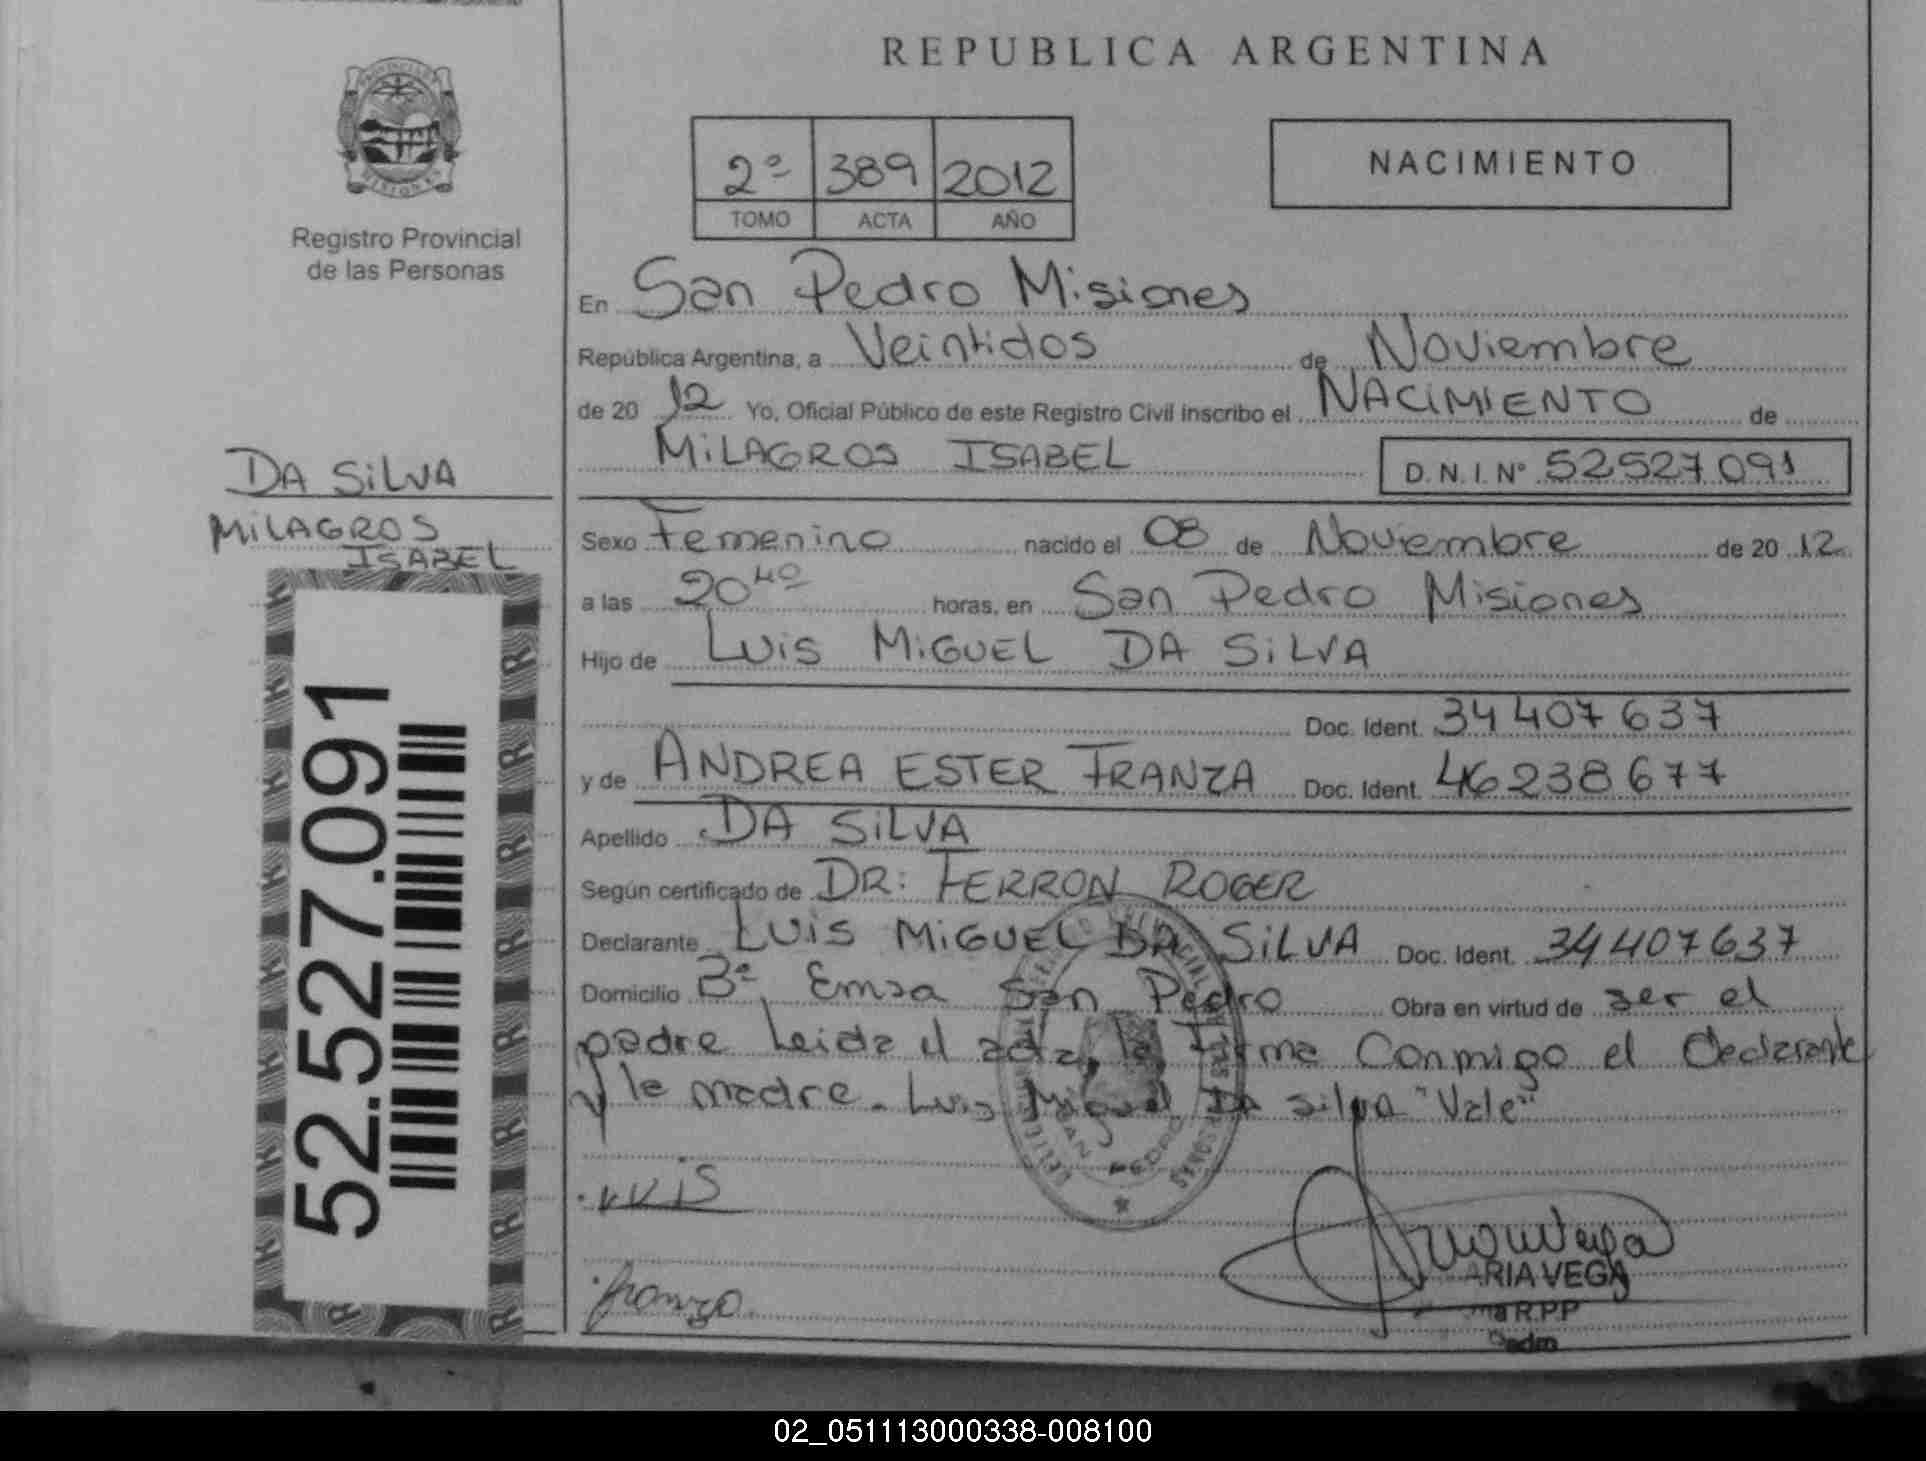 REPUBLICA ARGENTINA
PROVINCIA DE MISIONES
Registro Provincial
de las Personas
2º 389 2012
TOMO ACTA AÑO
NACIMIENTO
En San Pedro Misiones
República Argentina, a Veintidos de Noviembre
de 20 12 Yo, Oficial Público de este Registro Civil inscribo el NACIMIENTO de
MILAGROS ISABEL D.N.I. Nº 52527091
DA SILVA
MILAGROS
ISABEL
52.527.091
Sexo Femenino nacido el 08 de Noviembre de 20 12
a las 20 40 horas, en San Pedro Misiones
Hijo de Luis MIGUEL DA SILVA
Doc. Ident. 34 407 637
y de ANDREA ESTER FRANZA Doc. Ident. 46238677
Apellido DA SILVA
Según certificado de DR: FERRON ROGER
Declarante LUIS MIGUEL DA SILVA Doc. Ident. 34407637
Domicilio Bº Emsa San Pedro Obra en virtud de ser el
padre Leida el acta, la Firma Conmigo el Declarante
y la madre. Luis Miguel Da Silva "Vale"
SAN PEDRO
LUIS
franza
ARIA VEGA
R.P.P
02_051113000338-008100